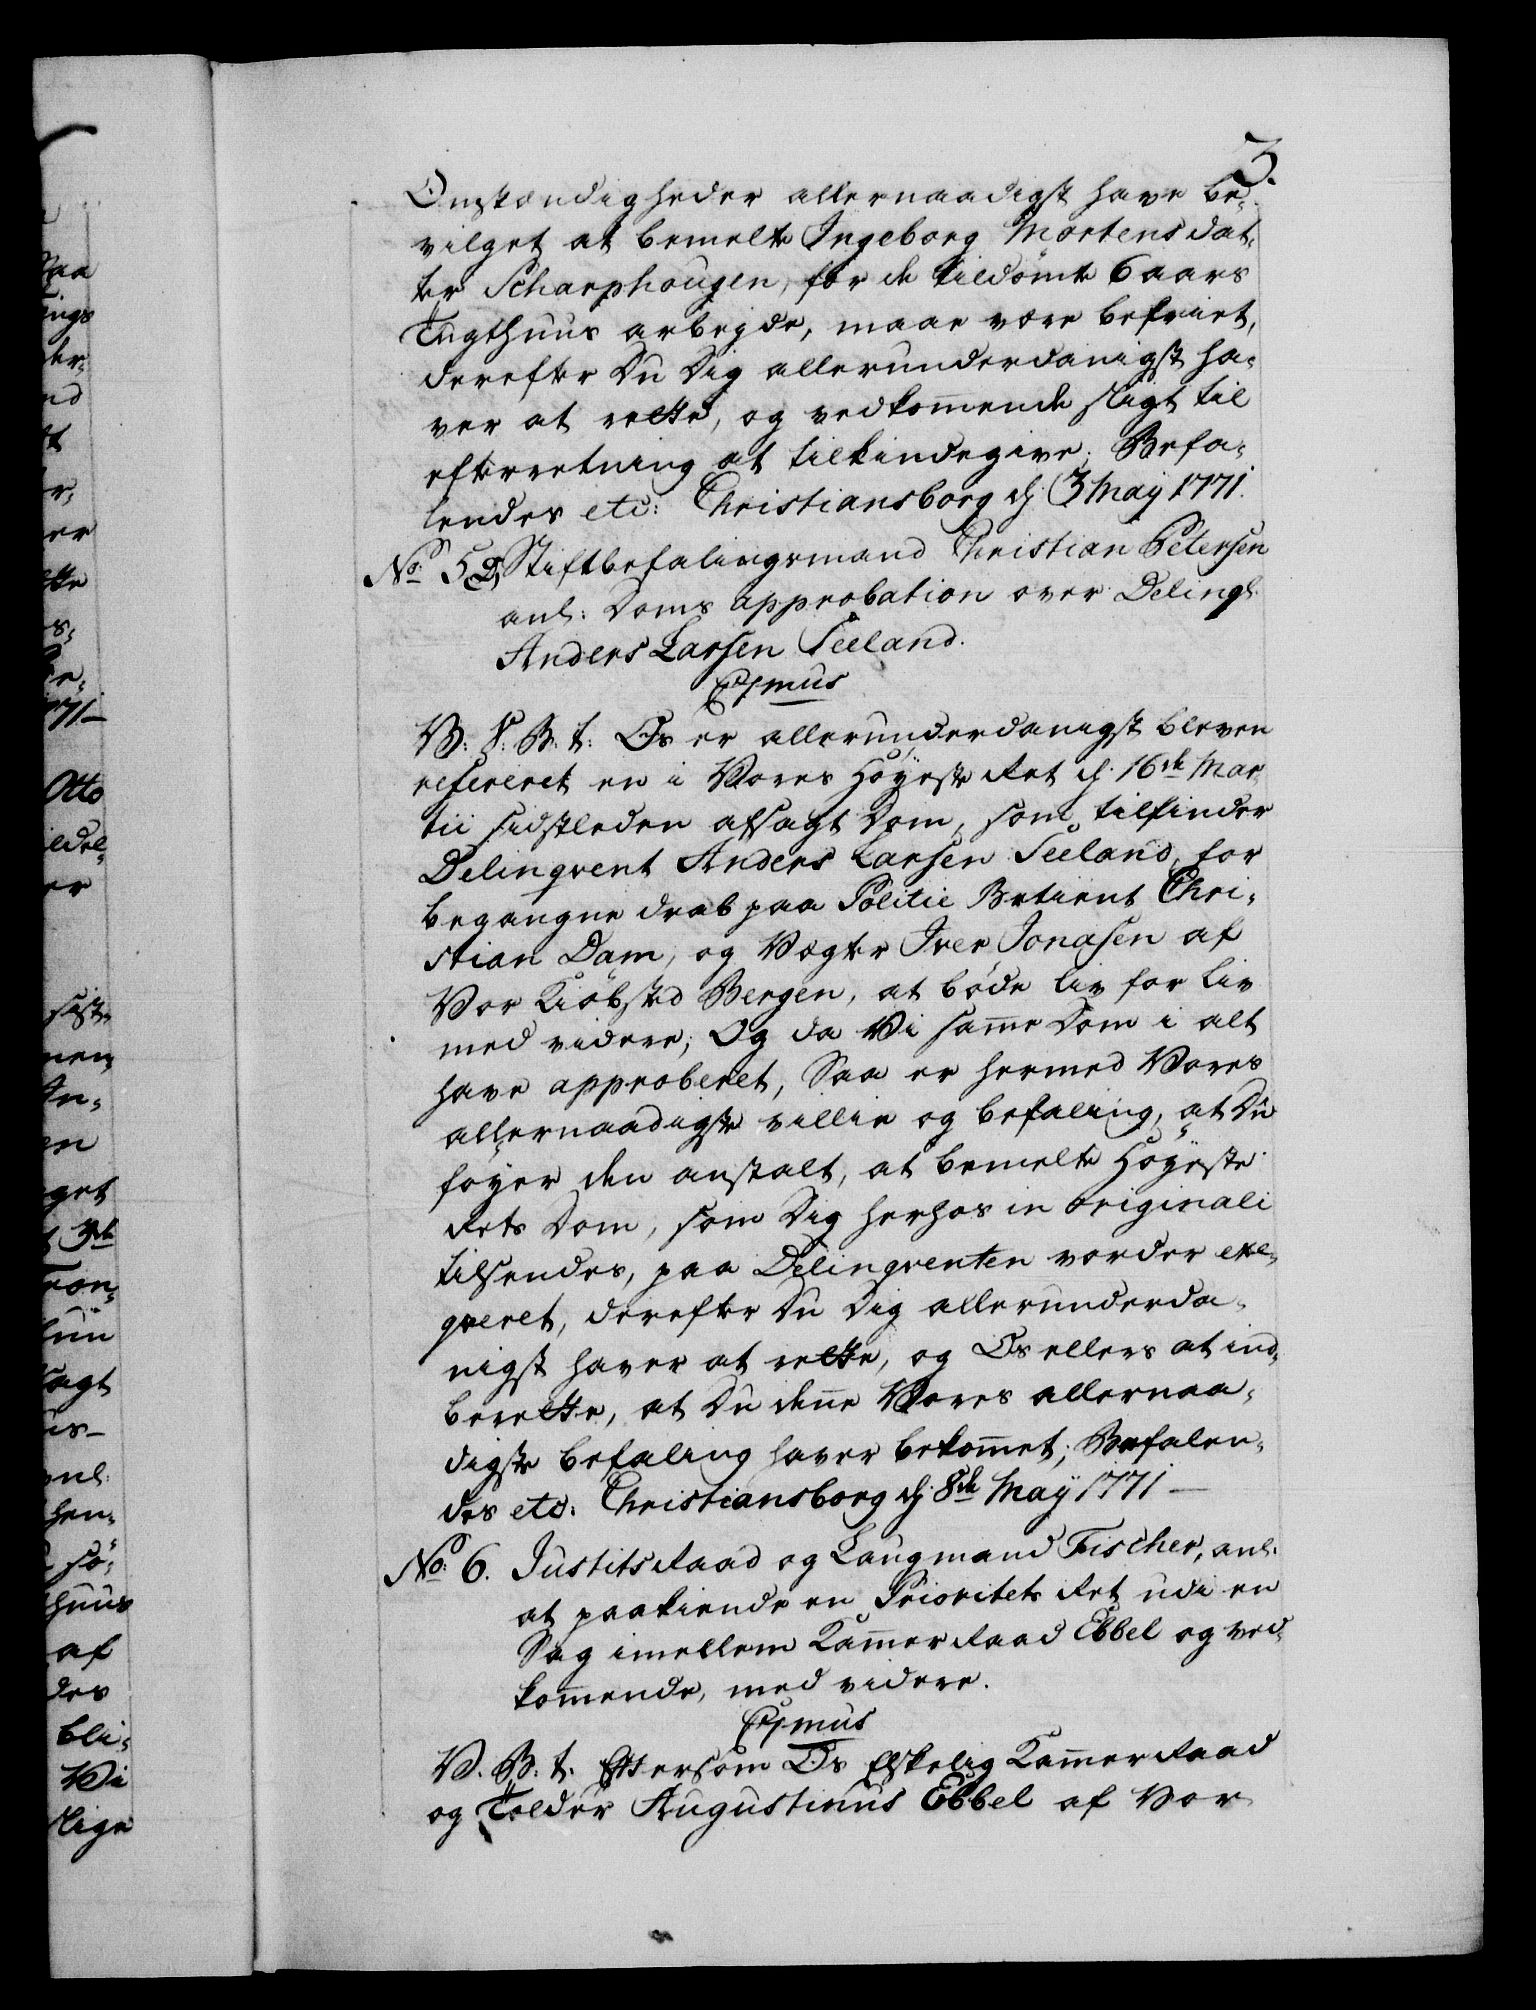 3.
Omstændigheder allernaadigst have be-
vilget at bemelte Ingeborg Mortensdat-
ter Scharphougen, for de tildömte 6 aars
Tugthuus arbejde, maae være befriet,
derefter Du Dig allerunderdanigst ha-
ver at rette, og vedkommende sligt til
efterretning at tilkiendegive; Befa-
lendes etc: Christiansborg d. 3 Maÿ 1771.
No: 5 Stiftbefalingsmand Christian Petersen
anl: Doms approbation over Delinqv:
Anders Larsen Seeland.
V: S: B: t: Os er allerunderdanigst bleven
refereret en i Vores Höÿeste Ret d. 16de Mar-
tii sidstleden afsagt Dom, som tilfinder
Delinqvent Anders Larsen Seeland, for
begangne drab paa Politie Betient Chri-
stian Dam, og Vægter Iver Jonasen af
Vor Kiöbsted Bergen, at böde liv for liv
med videre; Og da Vi samme Dom i alt
have approberet, Saa er hermed Vores
allernaadigste villie og befaling, at Du
föyer den anstalt, at bemelte Höÿeste
Rets Dom, som Dig herhos in originali
tilsendes, paa Delinqventen vorder exe-
qveret, derefter Du Dig allerunderda-
nigst haver at rette, og Os ellers at ind-
berette, at Du denne Vores allernaa-
digste befaling haver bekommet; Befalen-
des etc: Christiansborg d. 8de Maÿ 1771 —
No: 6. Justits Raad og Laugmand Fischer, anl:
at paakiende en Prioritets Ret udi en
Sag imellem Kammer Raad Ebbel og ved-
kommende, med videre.
V. B: t: Eftersom Os Elskelig Kammer Raad
og Tolder Augustinus Ebbel af Vor